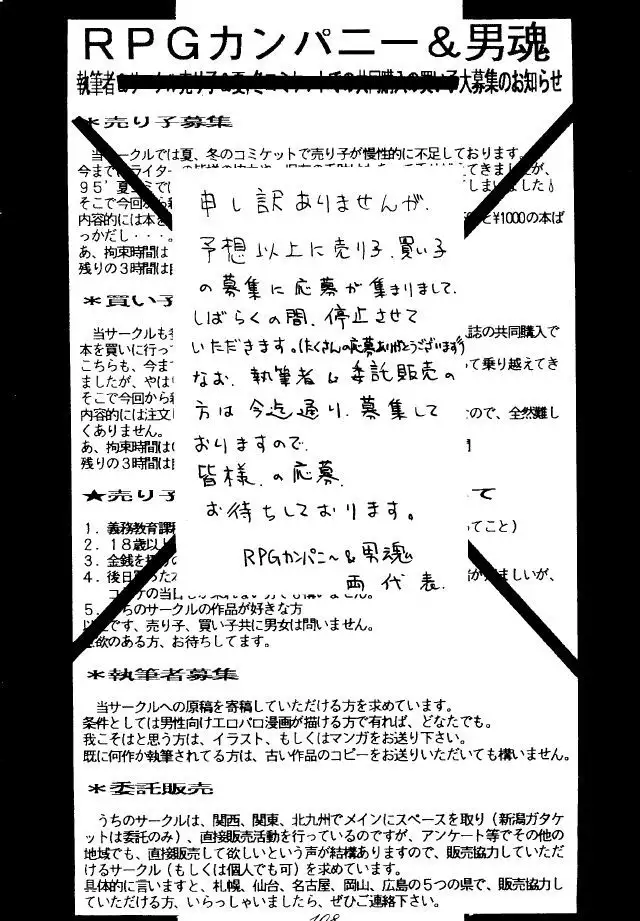 RPGカンパニー＆男魂
執筆者 大募集のお知らせ
＊売り子募集
当サークルでは夏、冬のコミケットで売り子が慢性的に不足しております。
今まではライター てきましたが、
９５’夏コミでは しまいました！
そこで今回から と¥1000の本ば
内容的には本を
っかだし・・・。
あ、拘束時間は
残りの３時間は
申し訳ありませんが、
予想以上に売り子、買い子
の募集に応募が集まりまして、
しばらくの間、停止させて
いただきます。(たくさんの応募ありがとうございます)
なお、執筆者＆委託販売の
方は今迄通り、募集して
おりますので、
皆様、の応募、
お待ちしております。
RPGカンパニー＆男魂
両代表、
＊買い子
当サークルも 誌の共同購入で
本を買いに行っ
こちらも、今ま て乗り越えてき
ましたが、やは
そこで今回から
内容的には注文 ので、全然難し
くありません。
あ、拘束時間は
残りの３時間は
★売り子 いて
１．義務教育課 ってこと）
２．１８歳以
３．金銭を
４．後日 ましいが、
５．うちのサークルの作品が好きな方
以上です、売り子、買い子共に男女は問いません。
意欲のある方、お待ちしてます。
＊執筆者募集
当サークルへの原稿を寄稿していただける方を求めています。
条件としては男性向けエロパロ漫画が描ける方で有れば、どなたでも。
我こそはと思う方は、イラスト、もしくはマンガをお送り下さい。
既に何作か執筆されてる方は、古い作品のコピーをお送りいただいても構いません。
＊委託販売
うちのサークルは、関西、関東、北九州でメインにスペースを取り（新潟ガタケ
ットは委託のみ）、直接販売活動を行っているのですが、アンケート等でその他の
地域でも、直接販売して欲しいという声が結構ありますので、販売協力していただ
けるサークル（もしくは個人でも可）を求めています。
具体的に言いますと、札幌、仙台、名古屋、岡山、広島の５つの県で、販売協力し
ていただける方、いらっしゃいましたら、ぜひご連絡下さい。
108